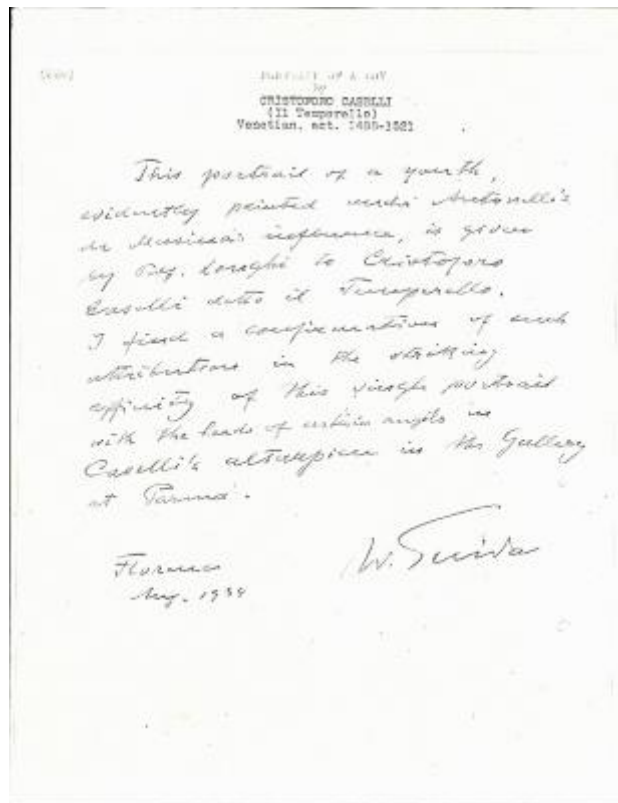 PORTRAIT OF A BOY
by
CRISTOFORO CASELLI
(Il Temperello)
Venetian. act. 1488-1521
This portrait of a youth,
evidently painted under Antonello's
da Messina's influence, is given
by Longhi to Cristoforo
Caselli detto il Temperello.
I find a confirmation of such
attribution in the striking
affinity of this single portrait
with the heads of certain angels in
Caselli's altarpiece in the Gallery
at Parma.
W. Suida
Florence
Aug. 1934